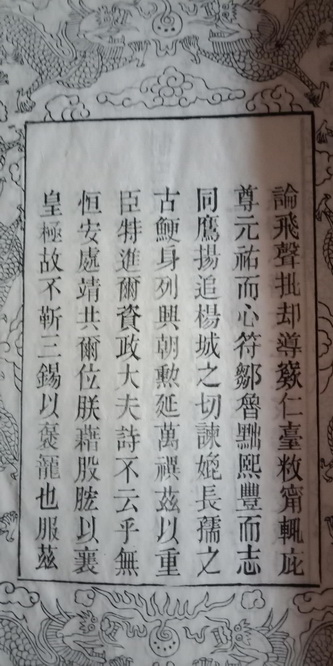 論飛聲批却導窽仁臺敉甯輒庇
尊元祐而心符鄒魯黜熙豐而志
同鷹揚追楊城之切諫媲長孺之
古鯁身列興朝勲延萬禩茲以重
臣特進爾資政大夫詩不云乎無
恒安處靖共爾位朕藉股肱以襄
皇極故不靳三錫以褒龍也服茲